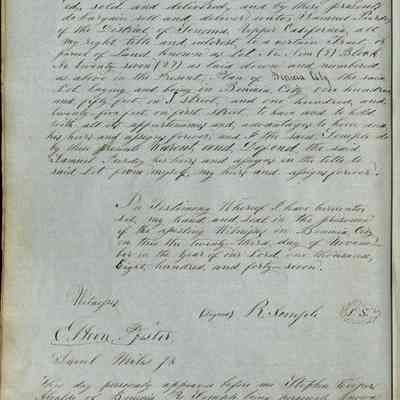 ed, sold and delivered, and by these presents
do bargain sell and deliver unto Samuel Purdy
of the District of Sonoma, Upper California, all
my right title and interest, to a certain Tract or
parcel of Land known as Lot No Nine (9) Block
No twenty seven (27) as laid down and numbered
as above in the Present Plan of Benicia City the said
Lot laying and being in Benicia City One hundred
and fifty feet on I Street, and one hundred, and
twenty-five feet on first Street. To have and to hold
with all its appertainings and advantages to him and
his heirs and assigns forever, and I the said Semple do
by these presents Warrent, and Defend the said
Samuel Purdy his heirs and assigns in the title to
said Lot from myself, my heirs and assigns forever.
In Testimony Whereof I have hereunto
set, my hand and Seal in the presence
of the Witness in Benicia City
on this the twenty-third, day of Novem-
ber in the year of our Lord one thousand,
Eight, hundred, and forty-seven.
Witness
Signed R. Semple L.S.
Pfister
Saml
This day personally appeared before me Stephen Cooper
Alcalde of Benicia R. Semple being personally known